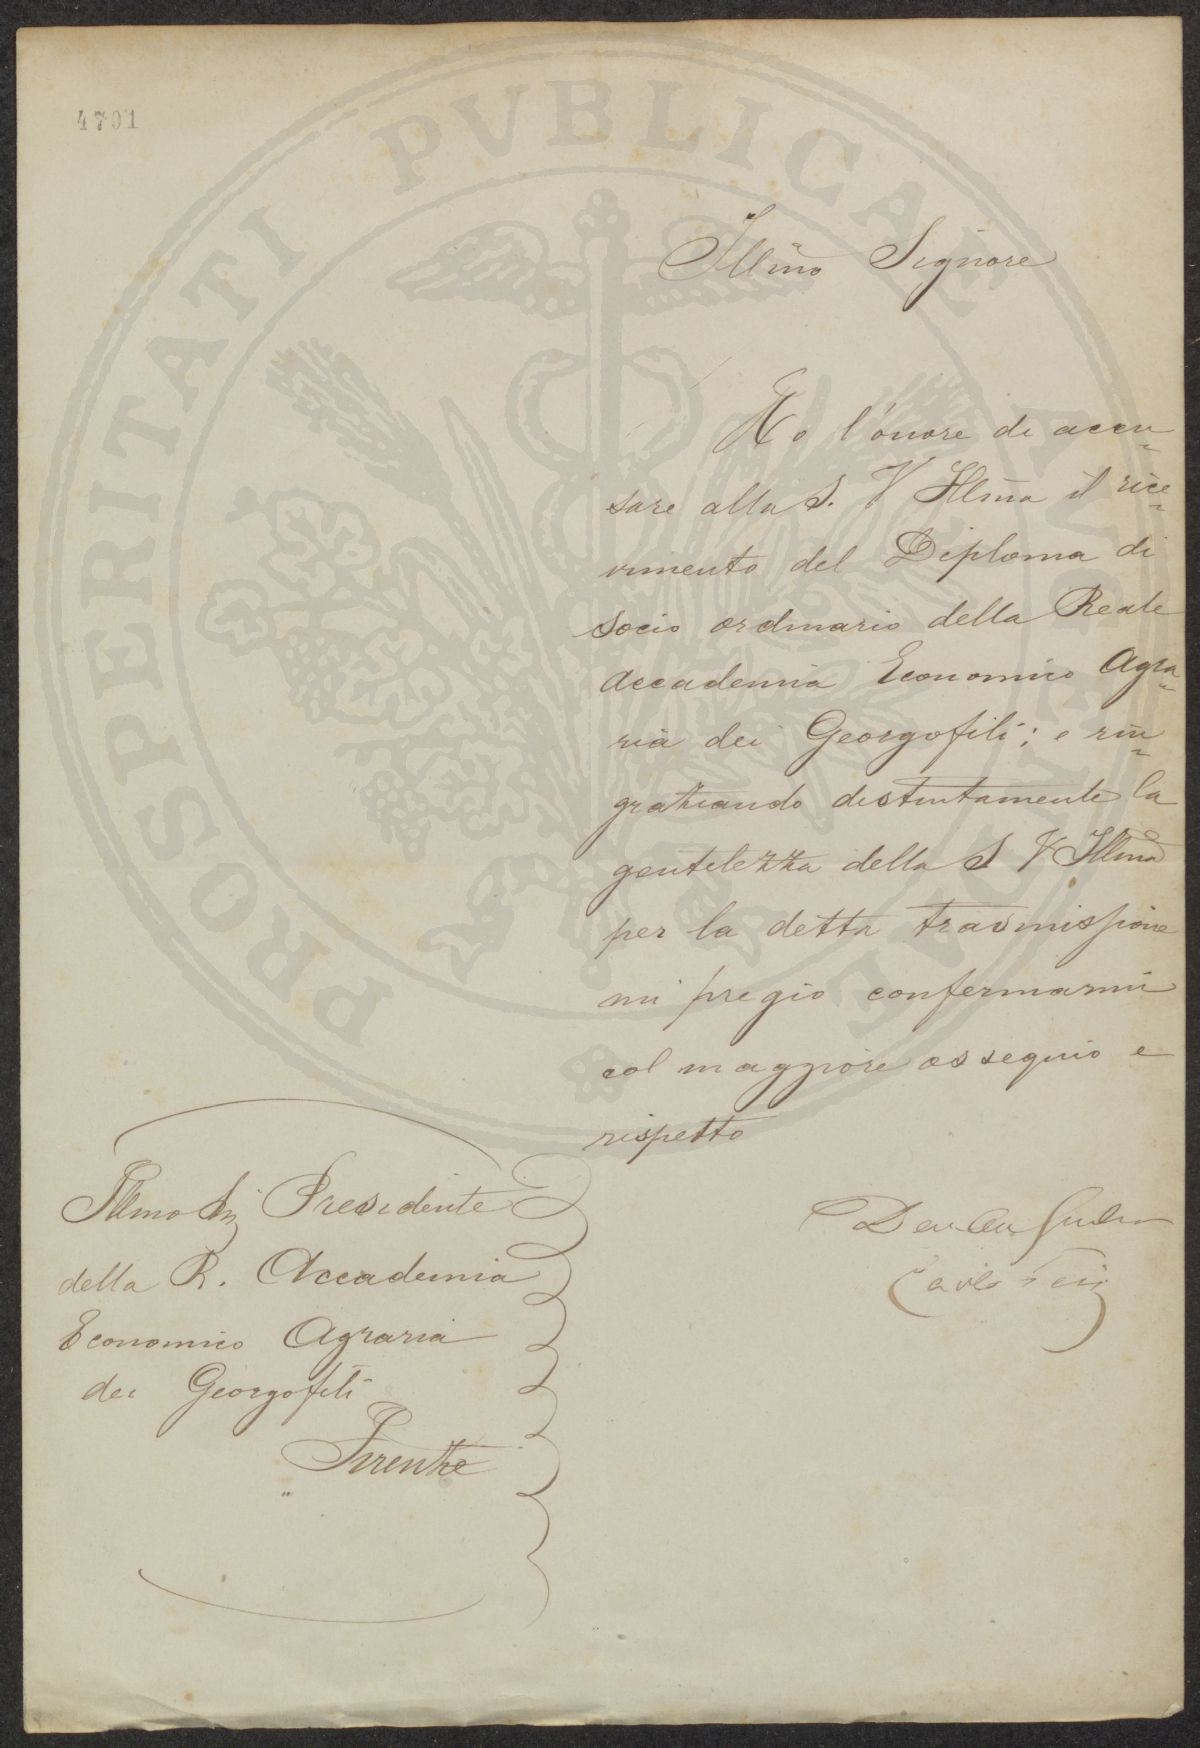 4701
PROSPERITATI PVBLICAE AVGENDAE
Illmo Signore
Ho l'onore di accu
sare alla S. V Illma il rice
vimento del Diploma di
socio ordinario della Reale
Accademia Economico Agra
ria dei Georgofili; e rin
graziando distintamente la
gentilezza della S V Illma
per la detta trasmissione
mi pregio confermarmi
col maggiore ossequio e
rispetto
Carlo
Illmo Sig Presidente
della R. Accademia
Economico Agraria
dei Georgofili
Firenze